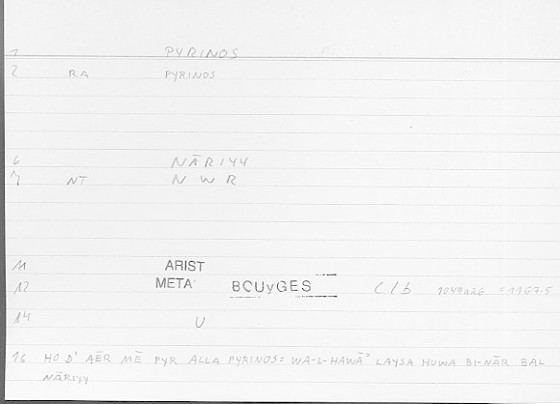 1 PYRINOS
2 RA PYRINOS
6 NĀRIYY
7 NT NWR
11 ARIST
12 META BOUyGES C/b 1049a26 = 1167.5
14 U
16 HO D' AĒR MĒ PYR ALLA PYRINOS = WA-L-HAWĀ' LAYSA HUWA BI-NĀR BAL
NĀRIYY